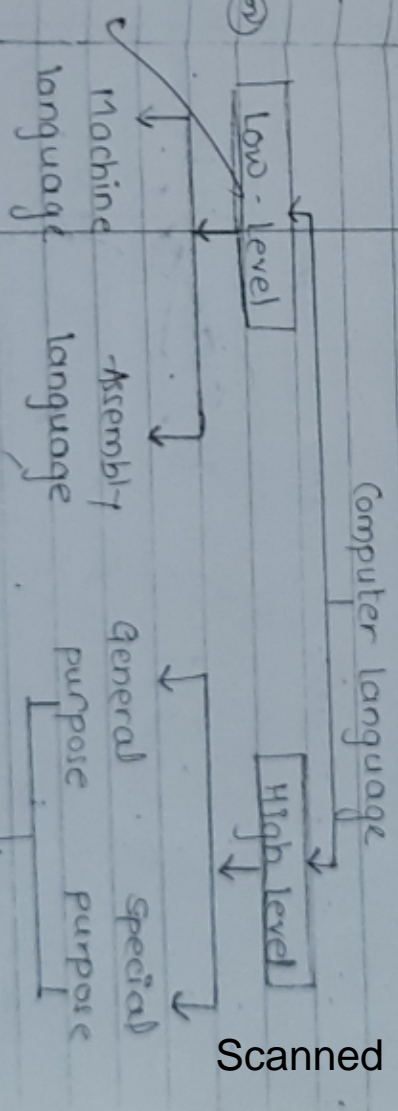 Computer language
Low-level
High level
Machine language
Assembly language
General purpose
special purpose
Scanned